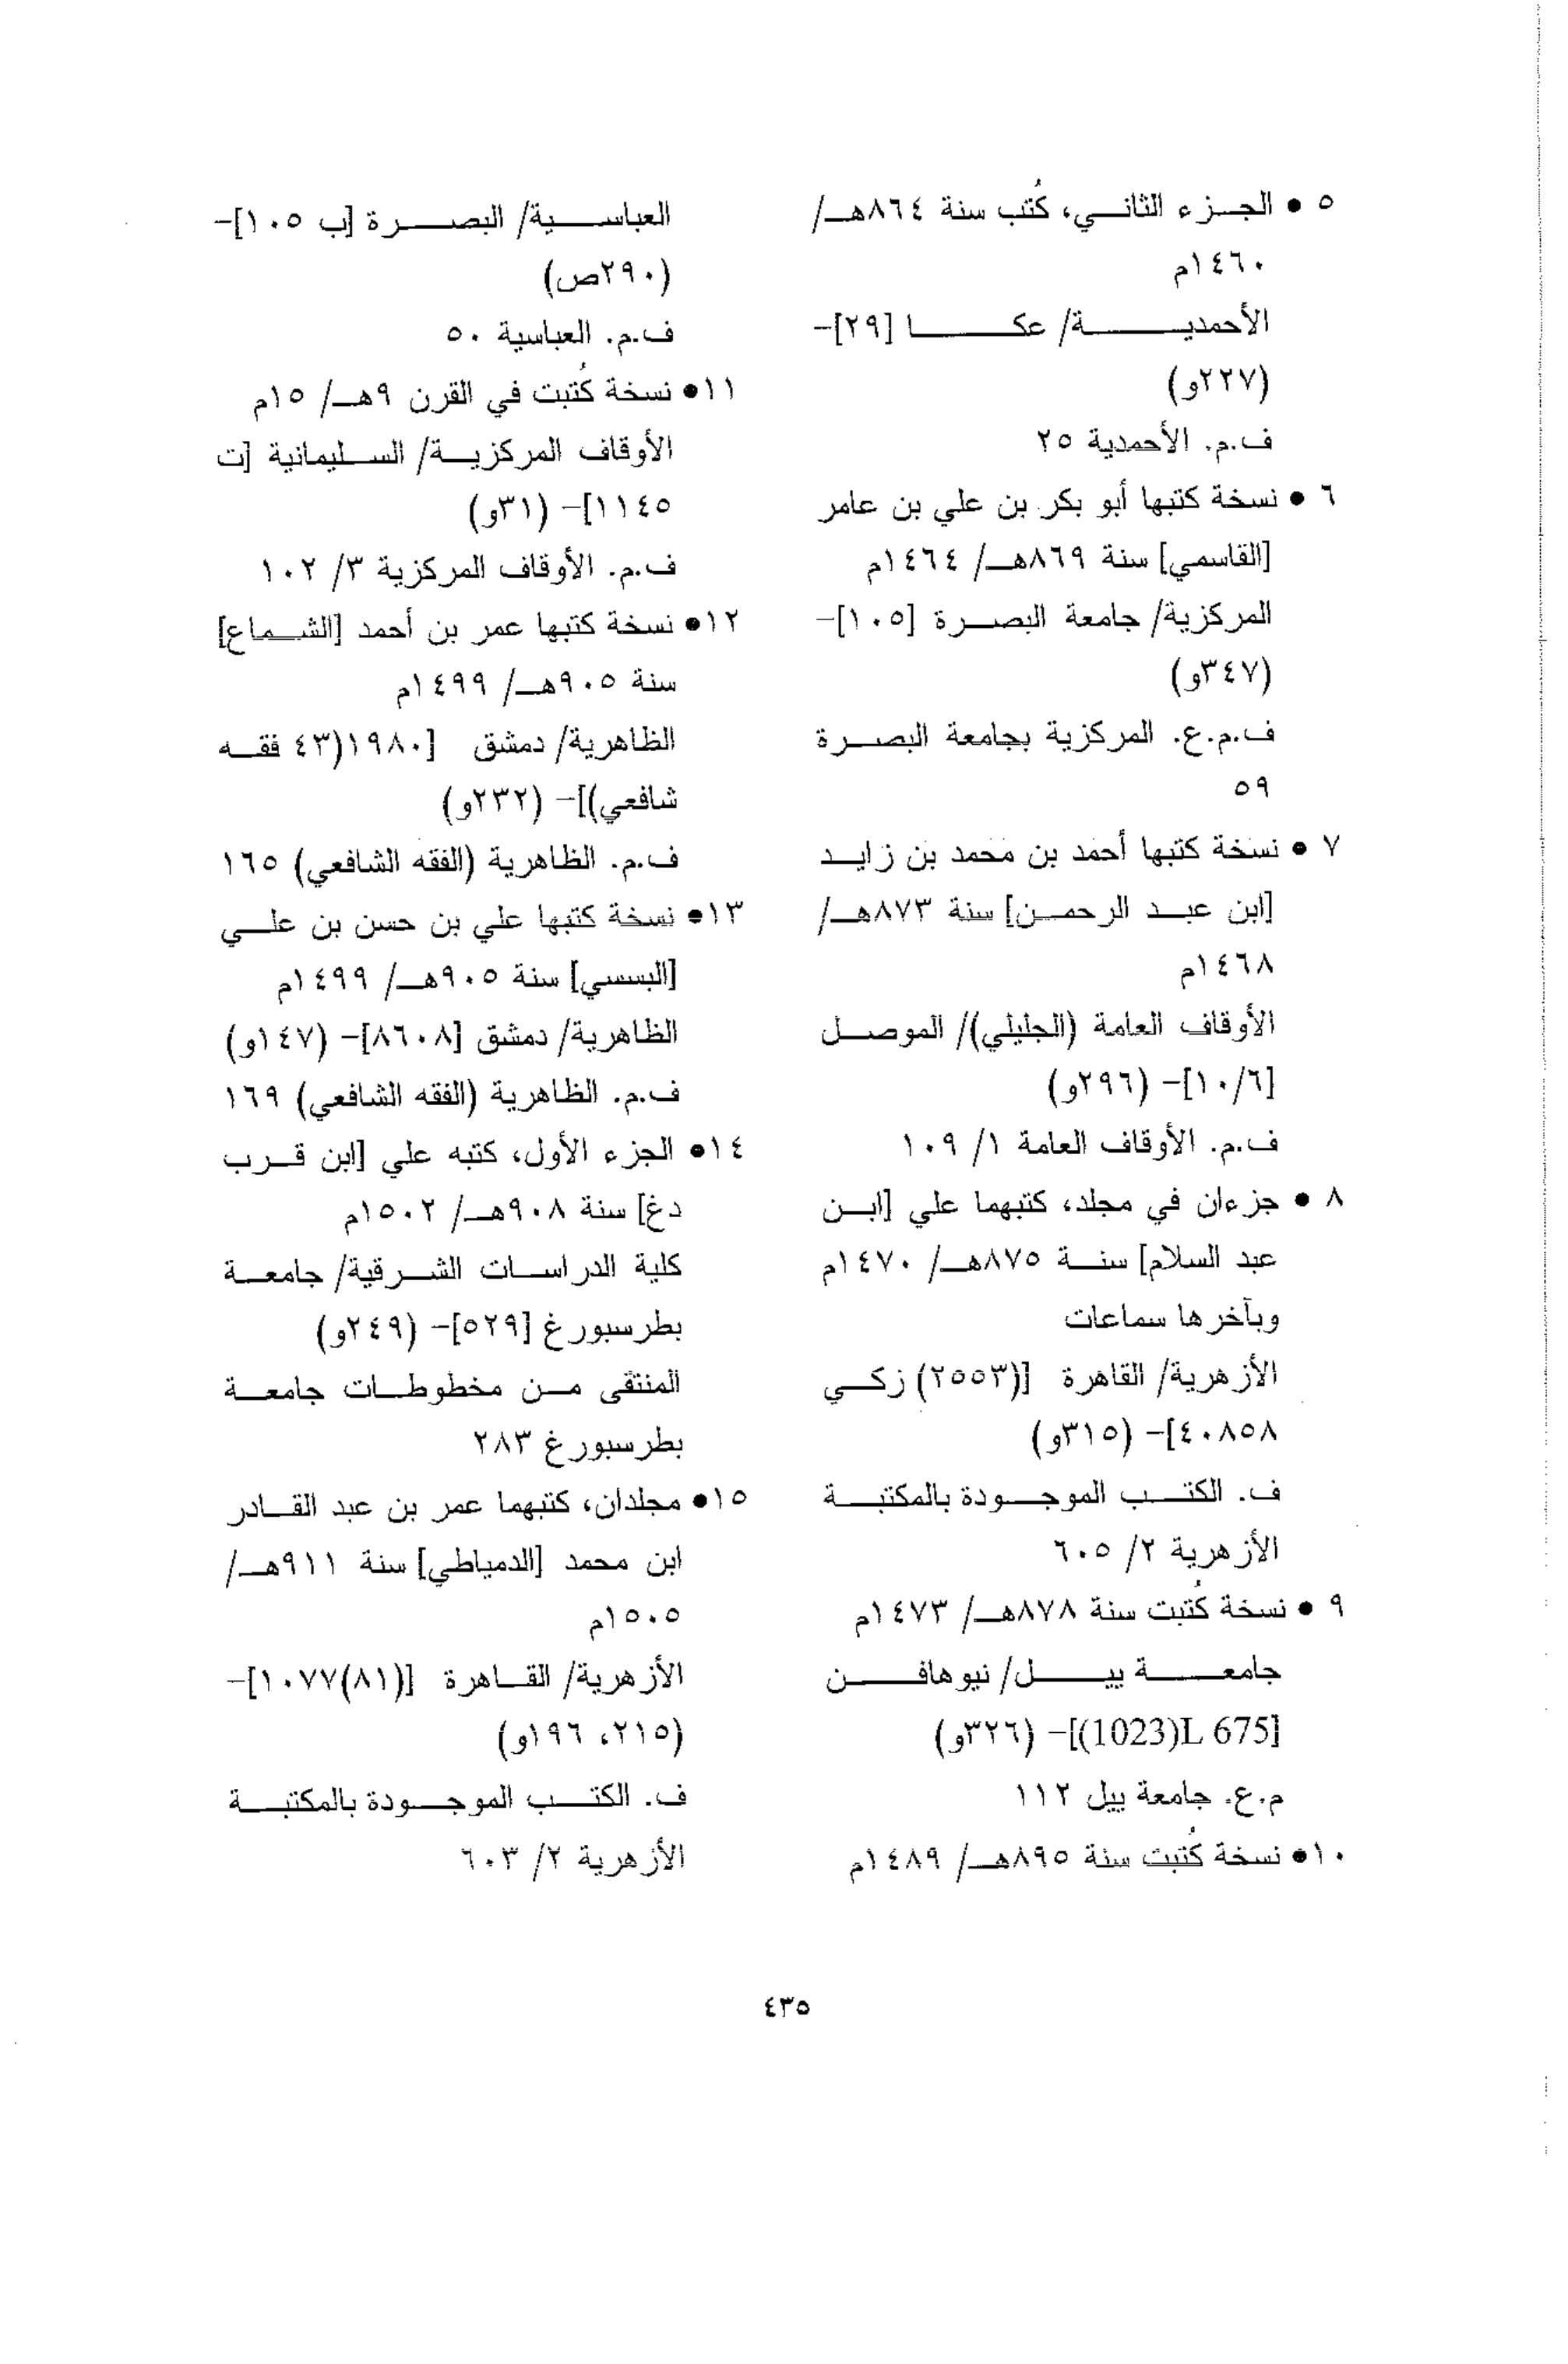 ٥ • الجزء الثاني، كُتب سنة ٨٦٤هـ/
١٤٦٠م
الأحمدية/ عكا [٢٩]-
(٢٢٧و)
ف.م. الأحمدية ٢٥
٦ • نسخة كتبها أبو بكر بن علي بن عامر
[القاسمي] سنة ٨٦٩هـ/ ١٤٦٤م
المركزية/ جامعة البصرة [١٠٥]-
(٣٤٧و)
ف.م.ع. المركزية بجامعة البصرة
٥٩
٧ • نسخة كتبها أحمد بن محمد بن زايد
[ابن عبد الرحمن] سنة ٨٧٣هـ/
١٤٦٨م
الأوقاف العامة (الجليلي)/ الموصل
[١٠/٦]- (٢٩٦و)
ف.م. الأوقاف العامة ١/ ١٠٩
٨ • جزءان في مجلد، كتبهما علي [ابن
عبد السلام] سنة ٨٧٥هـ/ ١٤٧٠م
وبآخرها سماعات
الأزهرية/ القاهرة [(٢٥٥٣) زكي
٤٠٨٥٨]- (٣١٥و)
ف. الكتب الموجودة بالمكتبة
الأزهرية ٢/ ٦٠٥
٩ • نسخة كُتبت سنة ٨٧٨هـ/ ١٤٧٣م
جامعة ييل/ نيوهافن
[L 675(1023)]- (٣٢٦و)
م.ع. جامعة ييل ١١٢
١٠• نسخة كُتبت سنة ٨٩٥هـ/ ١٤٨٩م
العباسية/ البصرة [ب ١٠٥]-
(٢٩٠ص)
ف.م. العباسية ٥٠
١١• نسخة كُتبت في القرن ٩هـ/ ١٥م
الأوقاف المركزية/ السليمانية [ت
١١٤٥]- (٣١و)
ف.م. الأوقاف المركزية ٣/ ١٠٢
١٢• نسخة كتبها عمر بن أحمد [الشماع]
سنة ٩٠٥هـ/ ١٤٩٩م
الظاهرية/ دمشق [١٩٨٠(٤٣ فقه
شافعي)]- (٢٣٢و)
ف.م. الظاهرية (الفقه الشافعي) ١٦٥
١٣• نسخة كتبها علي بن حسن بن علي
[البسسي] سنة ٩٠٥هـ/ ١٤٩٩م
الظاهرية/ دمشق [٨٦٠٨]- (١٤٧و)
ف.م. الظاهرية (الفقه الشافعي) ١٦٩
١٤• الجزء الأول، كتبه علي [ابن قرب
دغ] سنة ٩٠٨هـ/ ١٥٠٢م
كلية الدراسات الشرقية/ جامعة
بطرسبورغ [٥٢٩]- (٢٤٩و)
المنتقى من مخطوطات جامعة
بطرسبورغ ٢٨٣
١٥• مجلدان، كتبهما عمر بن عبد القادر
ابن محمد [الدمياطي] سنة ٩١١هـ/
١٥٠٥م
الأزهرية/ القاهرة [(٨١)١٠٧٧]-
(٢١٥، ١٩٦و)
ف. الكتب الموجودة بالمكتبة
الأزهرية ٢/ ٦٠٣
٤٣٥